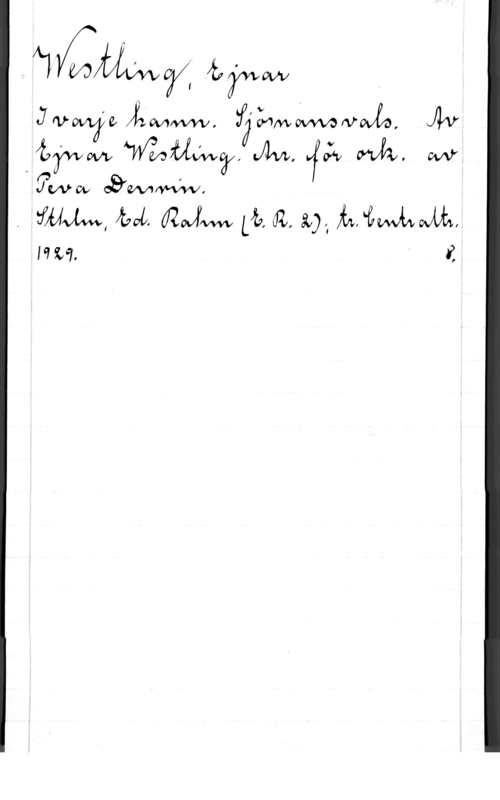 Westling, Ejnar
I varje hamn. Sjömansvals. Av
Ejnar Westling. Arr. för ork. av
Teva Derwin.
Sthlm, Ed. Rahm (E. R. 2); tr. Centraltr.
1929. 8.